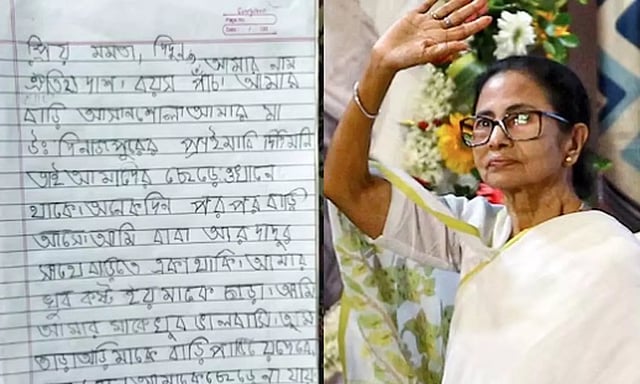 Page No.
Date
প্রিয় মমতা দিদুন, আমার নাম
ঐতিহ্য দাশ। বয়স পাঁচ। আমার
বাড়ি আসানসোল। আমার মা
উঃ দিনাজপুরের প্রাইমারি দিদিমনি
তাই আমাদের ছেড়ে ওখানে
থাকে। অনেকদিন পর পর বাড়ি
আসে। আমি বাবা আর দাদুর
সাথে বাড়িতে একা থাকি। আমার
খুব কষ্ট হয় মাকে ছাড়া। আমি
আমার মাকে খুব ভালবাসি। তুমি
মাকে বাড়ি